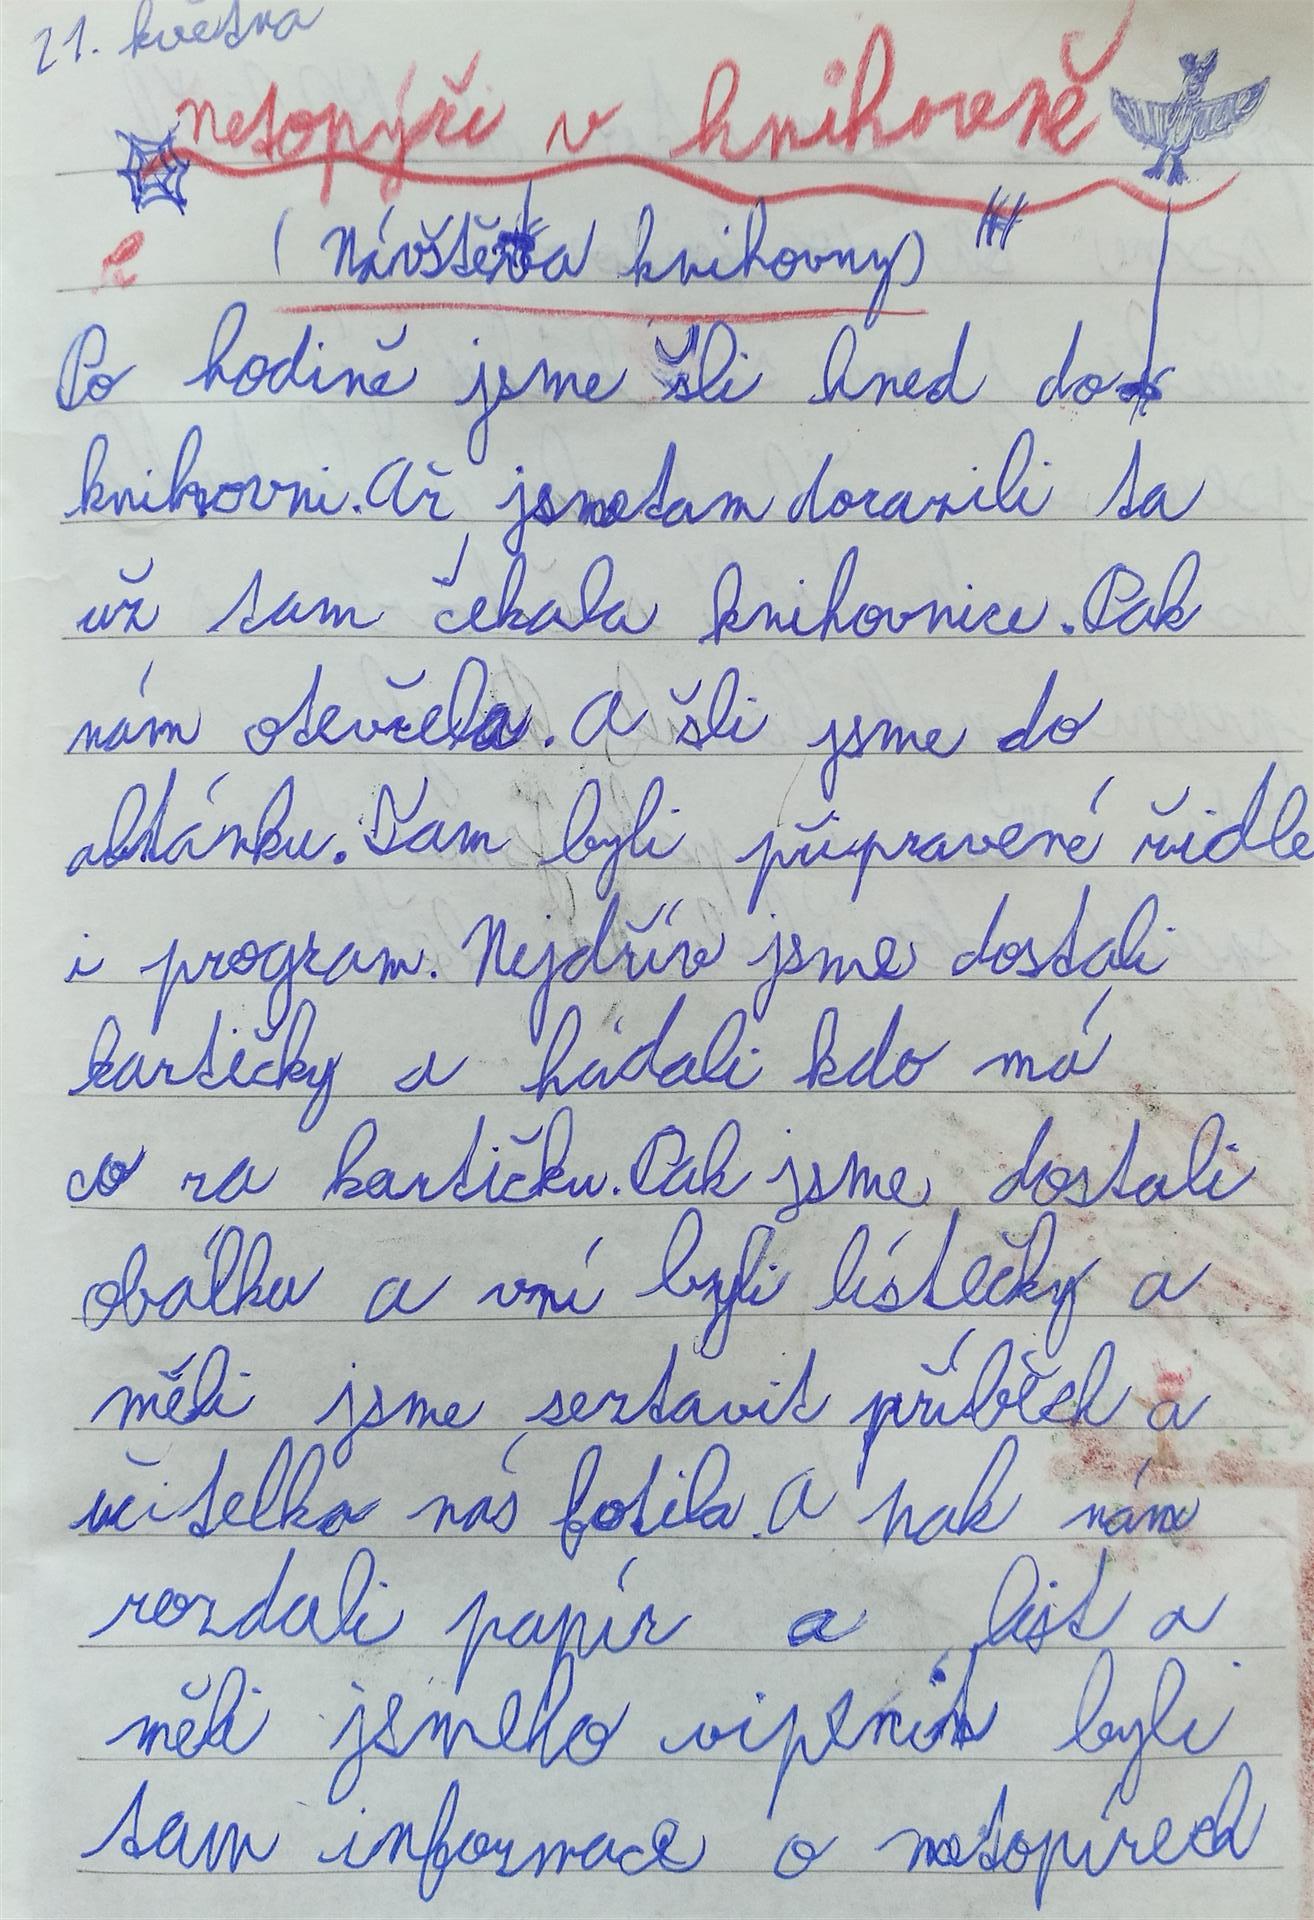 21. května
netopýři v knihovně
(Návštěva knihovny)
Po hodině jsme šli hned do
knihovni. Až jsme tam dorazili ta
už tam čekala knihovnice. Pak
nám otevřela. A šli jsme do
altánku. Tam byli připravené židle
i program. Nejdřív jsme dostali
kartičky a hádali kdo má
co za kartičku. Pak jsme dostali
obálku a vní byli lístečky a
měli jsme seztavit příběch a
učitelka nás fotila. A pak nám
rozdali papír a list a
měli jsmeho viplnit byli
tam informace o netopírech